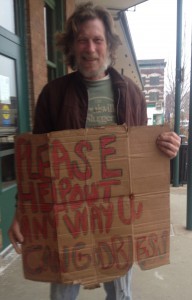 PLEASE
HELP OUT
ANY WAY U
CAN GOD BLESS